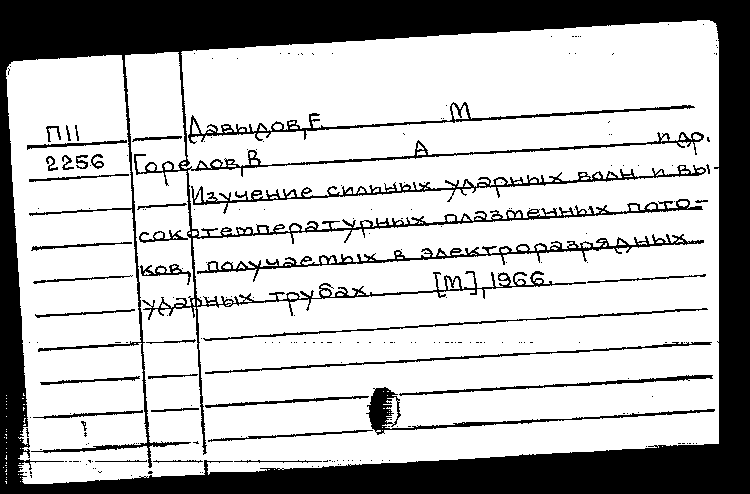 П11 Давыдов, Е М
2256 Горелов, В А и др.
Изучение сильных ударных волн и вы-
сокотемпературных плазменных пото-
ков, получаемых в электроразрядных
ударных трубах. [М.], 1966.